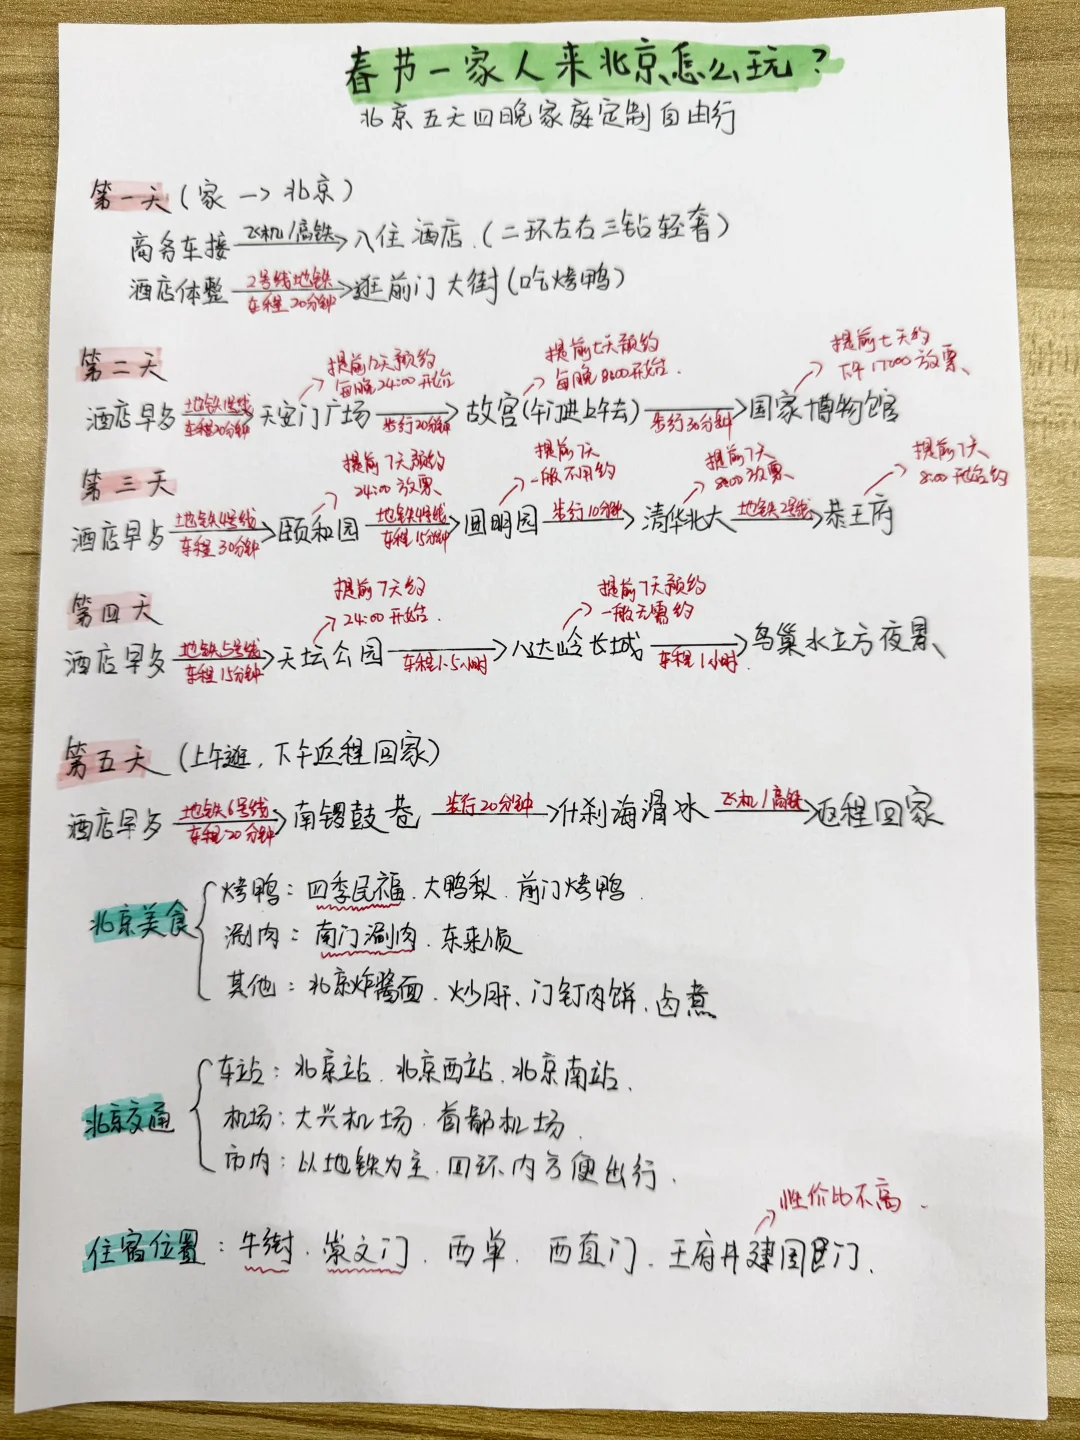 春节一家人来北京怎么玩?
北京五天四晚家庭定制自由行
第一天(家→北京)
商务车接 飞机/高铁 入住酒店.(二环左右三钻轻奢)
酒店休整 2号线地铁 车程20分钟 逛前门大街(吃烤鸭)
第二天
提前12天预约 每晚24:00开始
提前七天预约 每晚8:00开始.
提前七天约 下午17:00放票、
酒店早歺 地铁1号线 车程20分钟 天安门广场 步行20分钟 故宫(午门进上午去) 步行30分钟 国家博物馆
第三天
提前7天预约 24:00放票、
提前7天 一般不用约
提前7天 8:00放票、
提前7天 8:00开始约
酒店早歺 地铁4号线 车程30分钟 颐和园 地铁4号线 车程15分钟 圆明园 步行10分钟 清华北大 地铁2号线 恭王府
第四天
提前7天约 24:00开始.
提前7天预约 一般无需约
酒店早歺 地铁5号线 车程15分钟 天坛公园 车程1.5小时 八达岭长城 车程1小时. 鸟巢水立方夜景、
第五天 (上午逛,下午返程回家)
酒店早歺 地铁6号线 车程20分钟 南锣鼓巷 步行20分钟 什刹海滑冰 飞机/高铁 返程回家
北京美食
烤鸭:四季民福、大鸭梨、前门烤鸭.
涮肉:南门涮肉、东来顺
其他:北京炸酱面、炒肝、门钉肉饼、卤煮
北京交通
车站:北京站、北京西站、北京南站、
机场:大兴机场、首都机场.
市内:以地铁为主、四环内方便出行.
性价比不高.
住宿位置:牛街、崇文门、西单、西直门、王府井建国门、